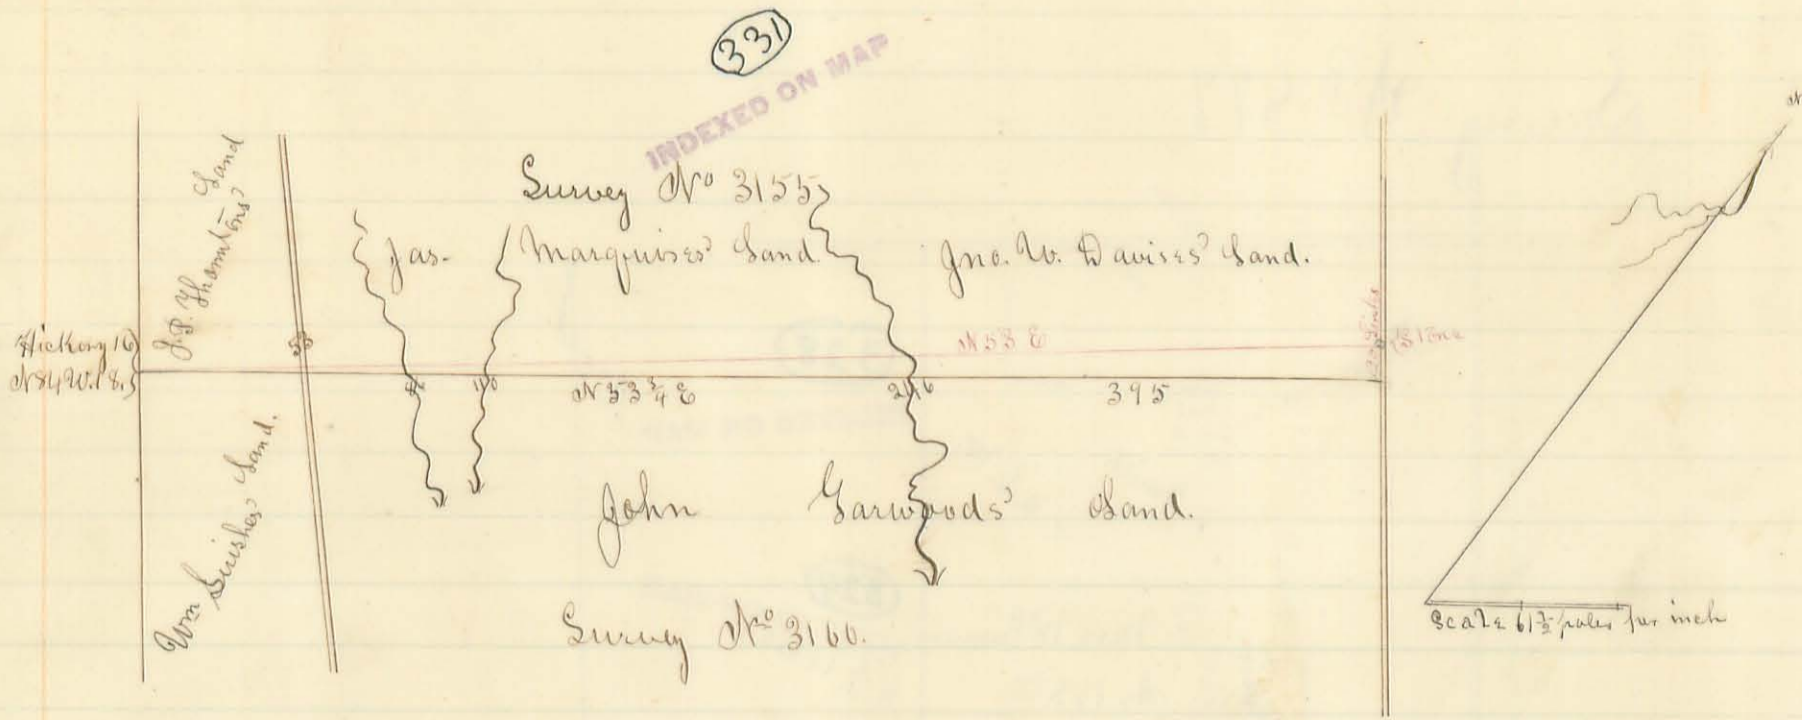 331
INDEXED ON MAP
Survey No 3155
J. P. Thorntons' Land
Jas- Marquises' Land.
Jno. W. Davises' Land.
Hickory 16
N 84 W. 18,5
53
N 53 E
Stone
Links
86
110
N 53 3/4 E
246
395
Wm Land.
John Garwoods' Land.
Survey No 3160.
N
Scale 61 1/2 poles per inch